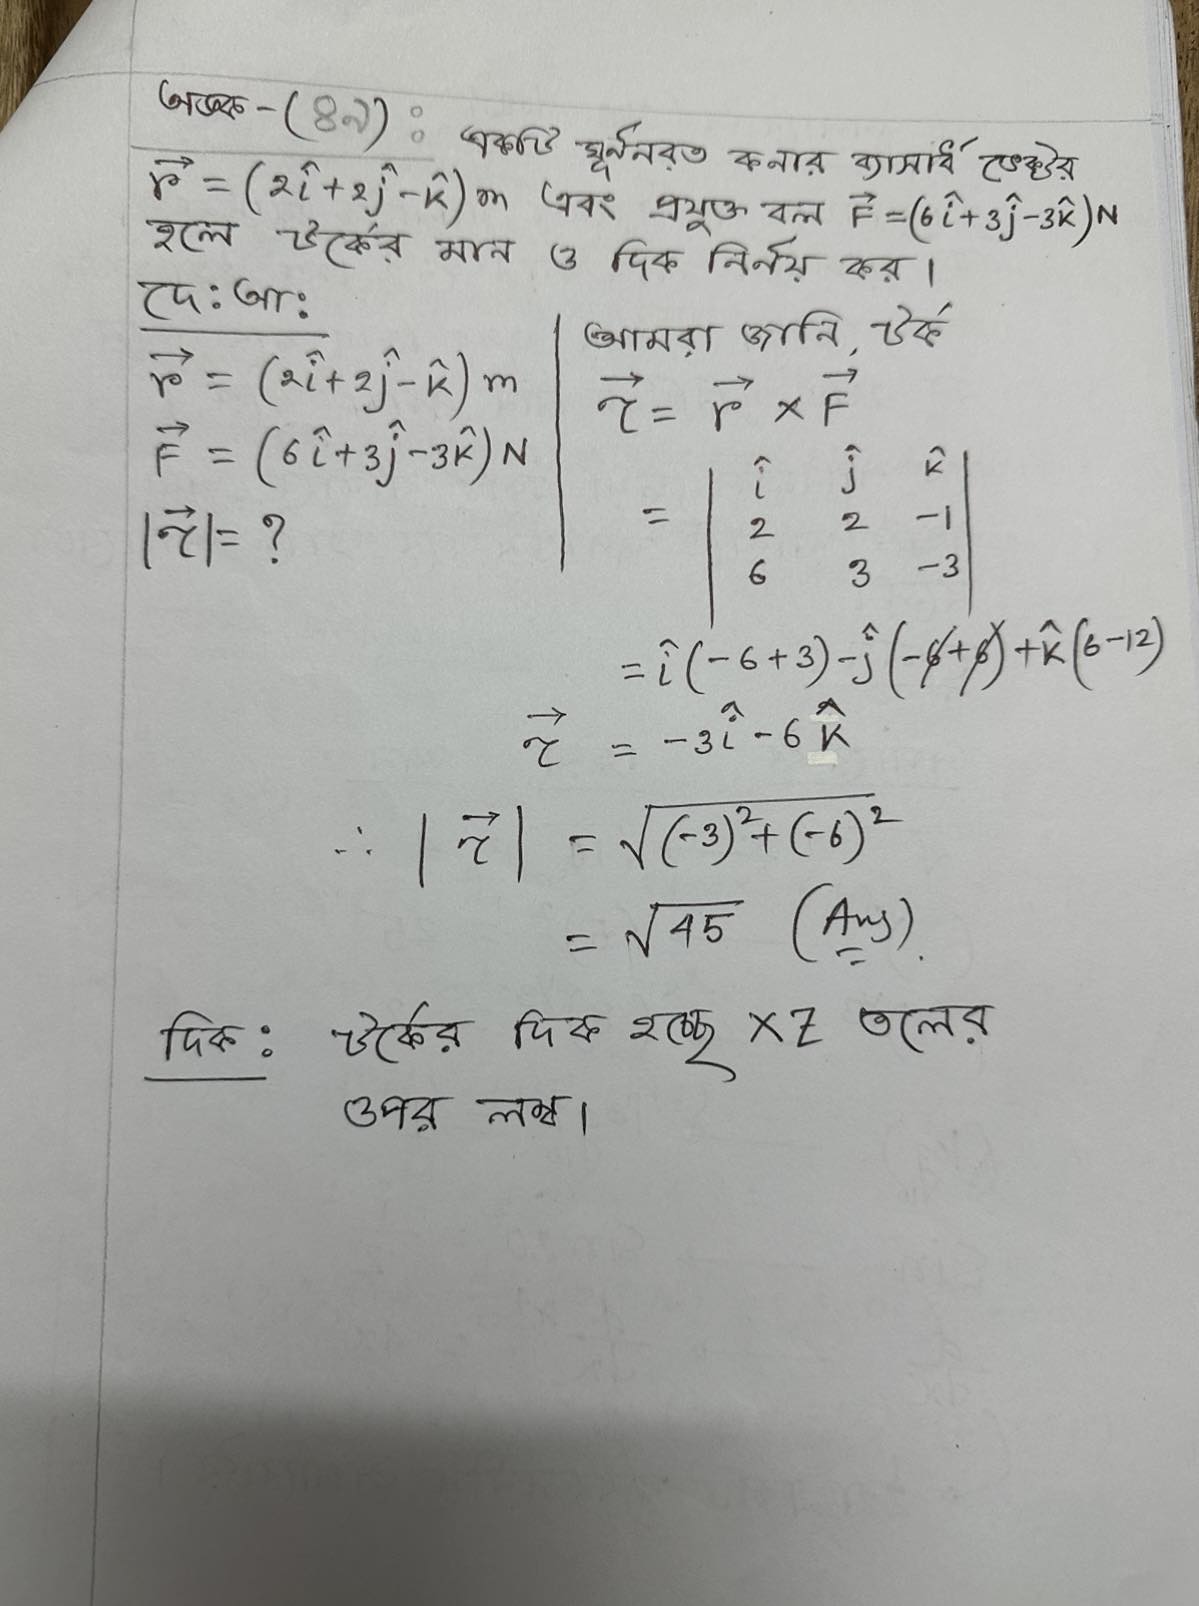 অঙ্ক-(৪৯): একটি ঘূর্ননরত কনার ব্যাসার্ধ ভেক্টর
r⃗ = (2î+2ĵ-k̂) m এবং প্রযুক্ত বল F⃗ =(6î+3ĵ-3k̂)N
হলে টর্কের মান ও দিক নির্নয় কর।
দে:আ:
r⃗ = (2î+2ĵ-k̂) m
F⃗ = (6î+3ĵ-3k̂) N
|τ⃗| = ?
আমরা জানি, টর্ক
τ⃗ = r⃗ × F⃗
= | î ĵ k̂ |
| 2 2 -1 |
| 6 3 -3 |
= î(-6+3)-ĵ(-6+6)+k̂(6-12)
τ⃗ = -3î-6k̂
∴ |τ⃗| = √(-3)²+(-6)²
= √45 (Ans).
দিক: টর্কের দিক হচ্ছে XZ তলের
ওপর লম্ব।